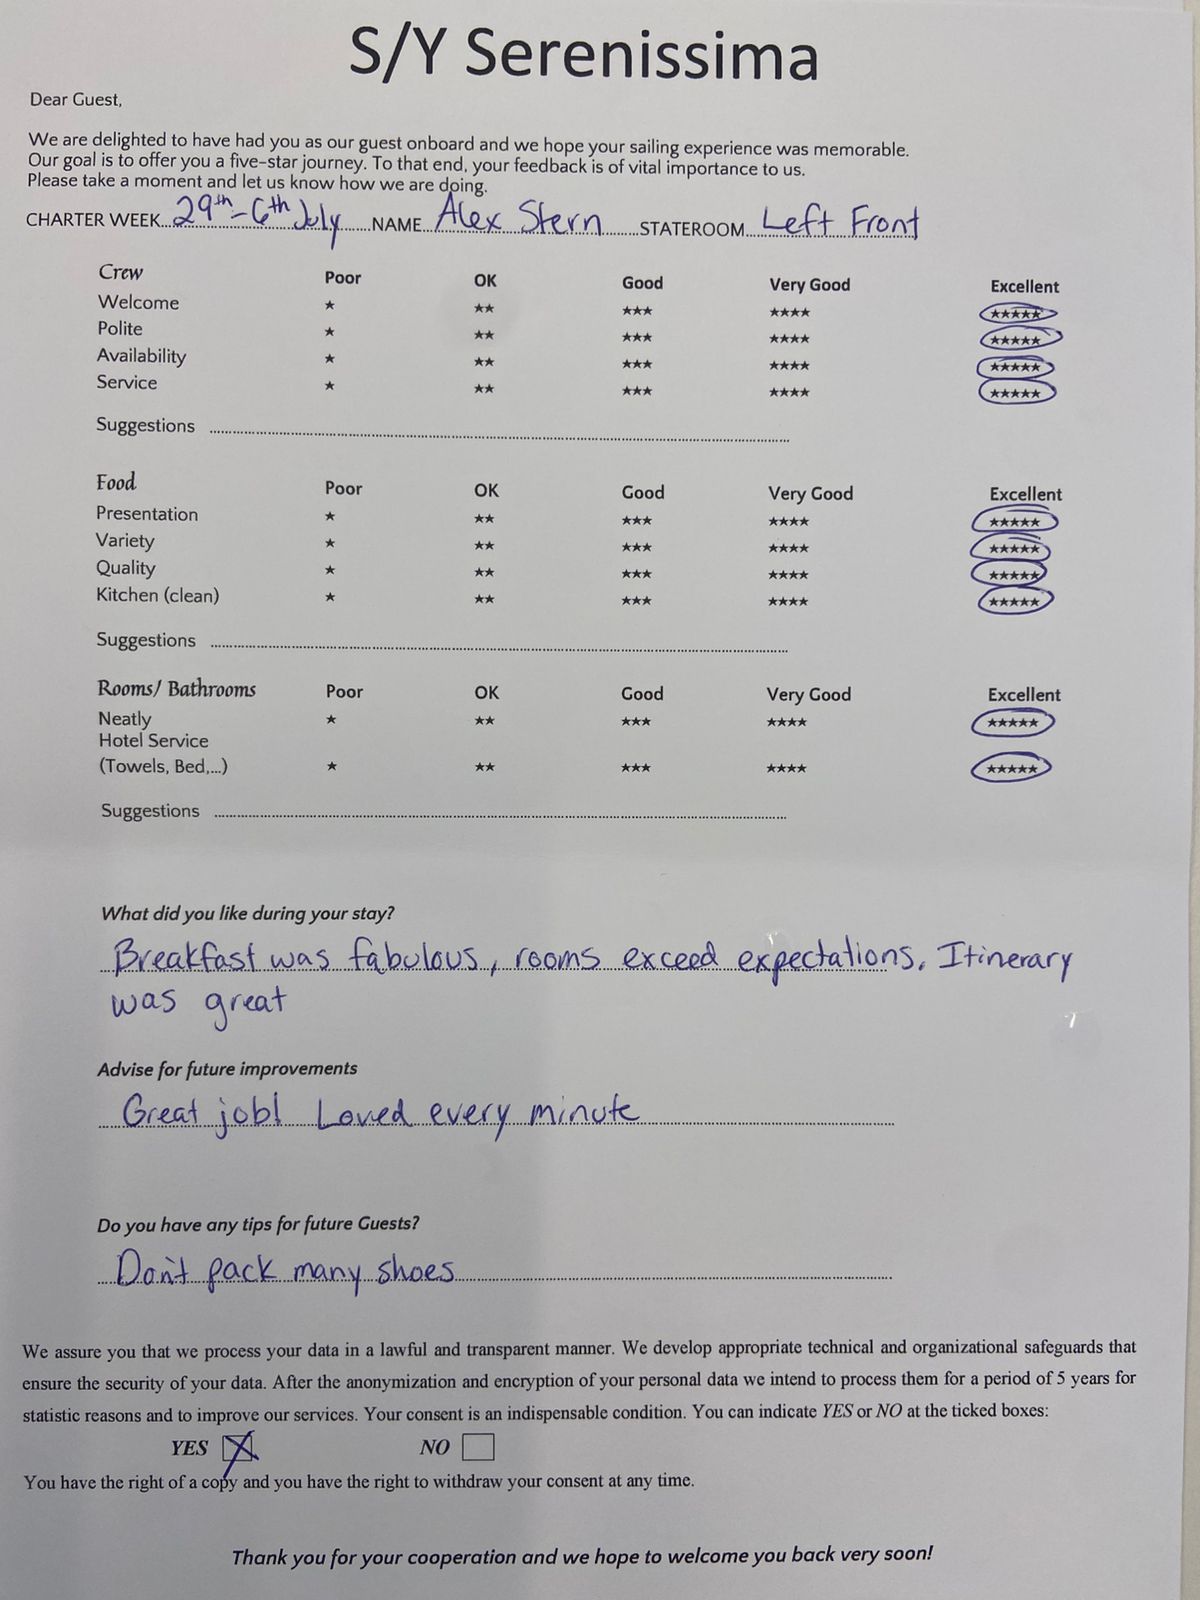 S/Y Serenissima
Dear Guest,
We are delighted to have had you as our guest onboard and we hope your sailing experience was memorable.
Our goal is to offer you a five-star journey. To that end, your feedback is of vital importance to us.
Please take a moment and let us know how we are doing.
CHARTER WEEK...29th-6th July...NAME...Alex Stern...STATEROOM...Left Front
Crew Poor OK Good Very Good Excellent
Welcome ★ ★★ ★★★ ★★★★ ★★★★★
Polite ★ ★★ ★★★ ★★★★ ★★★★★
Availability ★ ★★ ★★★ ★★★★ ★★★★★
Service ★ ★★ ★★★ ★★★★ ★★★★★
Suggestions
Food Poor OK Good Very Good Excellent
Presentation ★ ★★ ★★★ ★★★★ ★★★★★
Variety ★ ★★ ★★★ ★★★★ ★★★★★
Quality ★ ★★ ★★★ ★★★★ ★★★★★
Kitchen (clean) ★ ★★ ★★★ ★★★★ ★★★★★
Suggestions
Rooms/ Bathrooms Poor OK Good Very Good Excellent
Neatly ★ ★★ ★★★ ★★★★ ★★★★★
Hotel Service
(Towels, Bed,...) ★ ★★ ★★★ ★★★★ ★★★★★
Suggestions
What did you like during your stay?
Breakfast was fabulous, rooms exceed expectations. Itinerary
was great
Advise for future improvements
Great job! Loved every minute
Do you have any tips for future Guests?
Don't pack many shoes
We assure you that we process your data in a lawful and transparent manner. We develop appropriate technical and organizational safeguards that
ensure the security of your data. After the anonymization and encryption of your personal data we intend to process them for a period of 5 years for
statistic reasons and to improve our services. Your consent is an indispensable condition. You can indicate YES or NO at the ticked boxes:
YES NO
You have the right of a copy and you have the right to withdraw your consent at any time.
Thank you for your cooperation and we hope to welcome you back very soon!